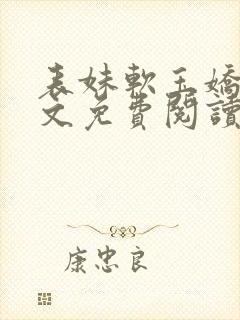 表妹軟玉嬌
文免費閱讀
康忠良